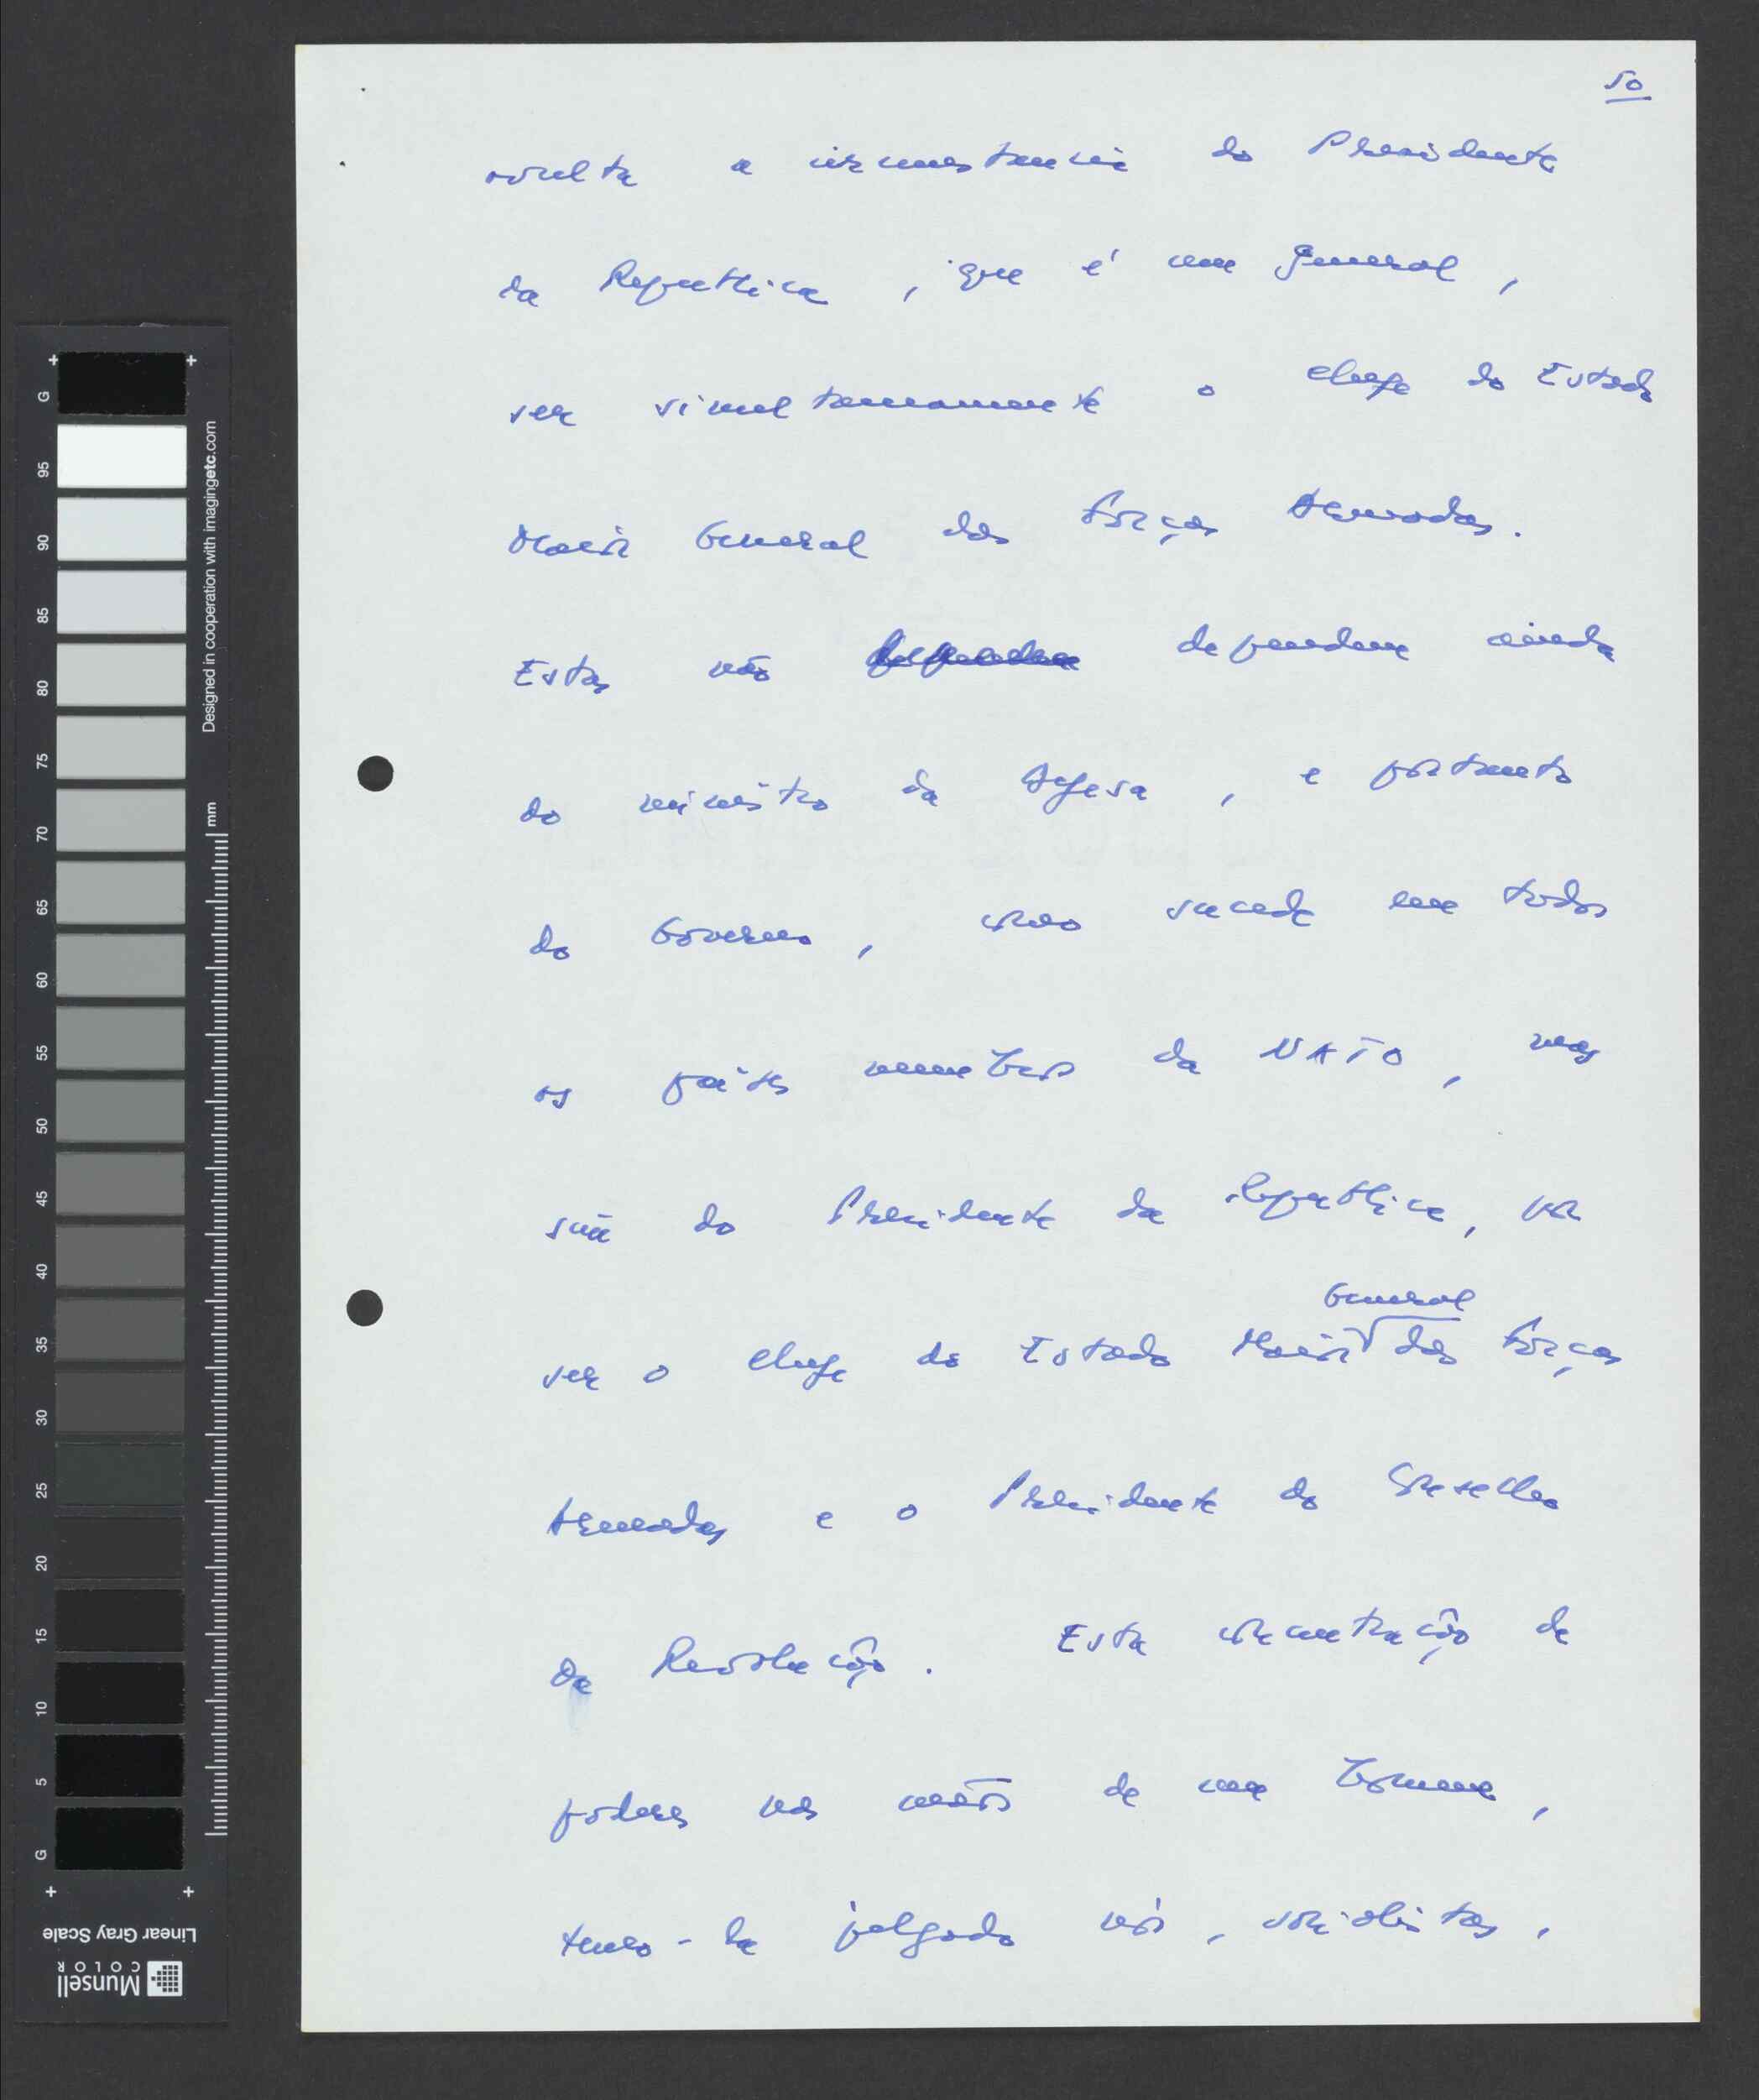 50
oculta a circunstancia do Presidente
da Republica, que é um general,
ser simultaneamente o chefe do Estado
Maior General das Forças Armadas.
Estas não dependem dependem ainda
do ministro da Defesa, e portanto
do Governo, como sucede em todos
os países membros da NATO, mas
sim do Presidente da Republica, por
General
ser o chefe do Estado Maior das Forças
Armadas e o Presidente do Conselho
da Revolução. Esta concentração de
poderes nas mãos de um homem,
temo-la julgado nós, socialistas,
G 95 90 85 80 75 70 65 60 55 50 45 40 35 30 25 20 15 10 5 G
Designed in cooperation with imagingetc.com
mm
Linear Gray Scale
Munsell
COLOR